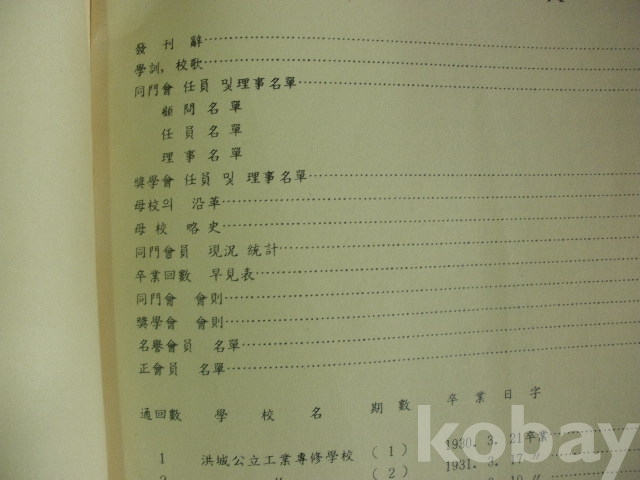 發刊辭
學訓, 校歌
同門會 任員 및 理事名單
顧問名單
任員名單
理事名單
獎學會 任員 및 理事名單
母校의 沿革
母校 略史
同門會員 現況 統計
卒業回數 早見表
同門會 會則
獎學會 會則
名譽會員 名單
正會員 名單
通回數 學校名 期數 卒業日字
1 洪城公立工業專修學校 (1) 1930. 3. 21卒業
〃 (2) 1931. 3. 17 〃
kobay